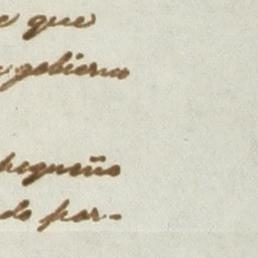 e que
gobierno
pequeño
do por-